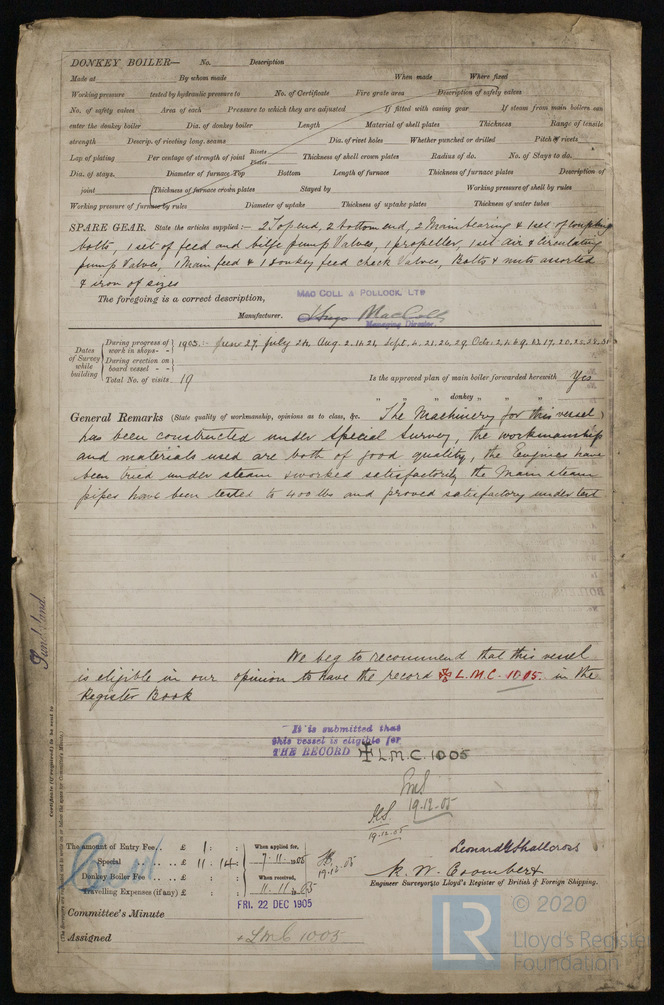 DONKEY BOILER— No. Description
Made at By whom made When made Where fixed
Working pressure tested by hydraulic pressure to No. of Certificate Fire grate area Description of safety valves
No. of safety valves Area of each Pressure to which they are adjusted If fitted with easing gear If steam from main boilers can
enter the donkey boiler Dia. of donkey boiler Length Material of shell plates Thickness Range of tensile
strength Descrip. of riveting long. seams Dia. of rivet holes Whether punched or drilled Pitch of rivets
Lap of plating Per centage of strength of joint Rivets Plates Thickness of shell crown plates Radius of do. No. of Stays to do.
Dia. of stays. Diameter of furnace Top Bottom Length of furnace Thickness of furnace plates Description of
joint Thickness of furnace crown plates Stayed by Working pressure of shell by rules
Working pressure of furnace by rules Diameter of uptake Thickness of uptake plates Thickness of water tubes
SPARE GEAR. State the articles supplied:— 2 Top end, 2 bottom end, 2 Main bearing & 1 set of coupling
bolts, 1 set of feed and bilge pump Valves, 1 propeller, 1 set air & Circulating
pump Valves, 1 Main feed & 1 donkey feed check Valves, Bolts & nuts assorted
& iron of sizes
The foregoing is a correct description,
MAC COLL & POLLOCK, LTD
Manufacturer. Hugo MacColl
Managing Director.
Dates of Survey while building
During progress of work in shops - - 1905:- June 27, July 24, Aug. 2. 16. 21, Sept. 4. 21. 26. 29. Octr. 2. 4. 6. 9. 13. 17. 20. 26. 28. 31
During erection on board vessel - - -
Total No. of visits 19
Is the approved plan of main boiler forwarded herewith Yes
" " " donkey " " "
General Remarks (State quality of workmanship, opinions as to class, &c. The Machinery for this vessel
has been constructed under Special Survey, the workmanship
and materials used are both of good quality, the Engines have
been tried under steam & worked satisfactorily the Main steam
pipes have been tested to 400 lbs and proved satisfactory under test
We beg to recommend that this vessel
is eligible in our opinion to have the record ✠ L.M.C. 10.05. in the
Register Book
It is submitted that
this vessel is eligible for
THE RECORD ✠ L.M.C. 10.05
19.12.05
19.12.05
Sunderland
Certificate (if required) to be sent to
The amount of Entry Fee .. £ 1 : :
Special .. .. .. £ 11 . 14 :
Donkey Boiler Fee .. .. £ : :
Travelling Expenses (if any) £ : :
When applied for,
7.11.1905
When received,
11.11.05
19.12.05
Leonard Shallcross
Engineer Surveyors to Lloyd's Register of British & Foreign Shipping.
Committee's Minute
FRI. 22 DEC 1905
Assigned + L.M.C 10.05
LR
© 2020
Lloyd's Register
Foundation